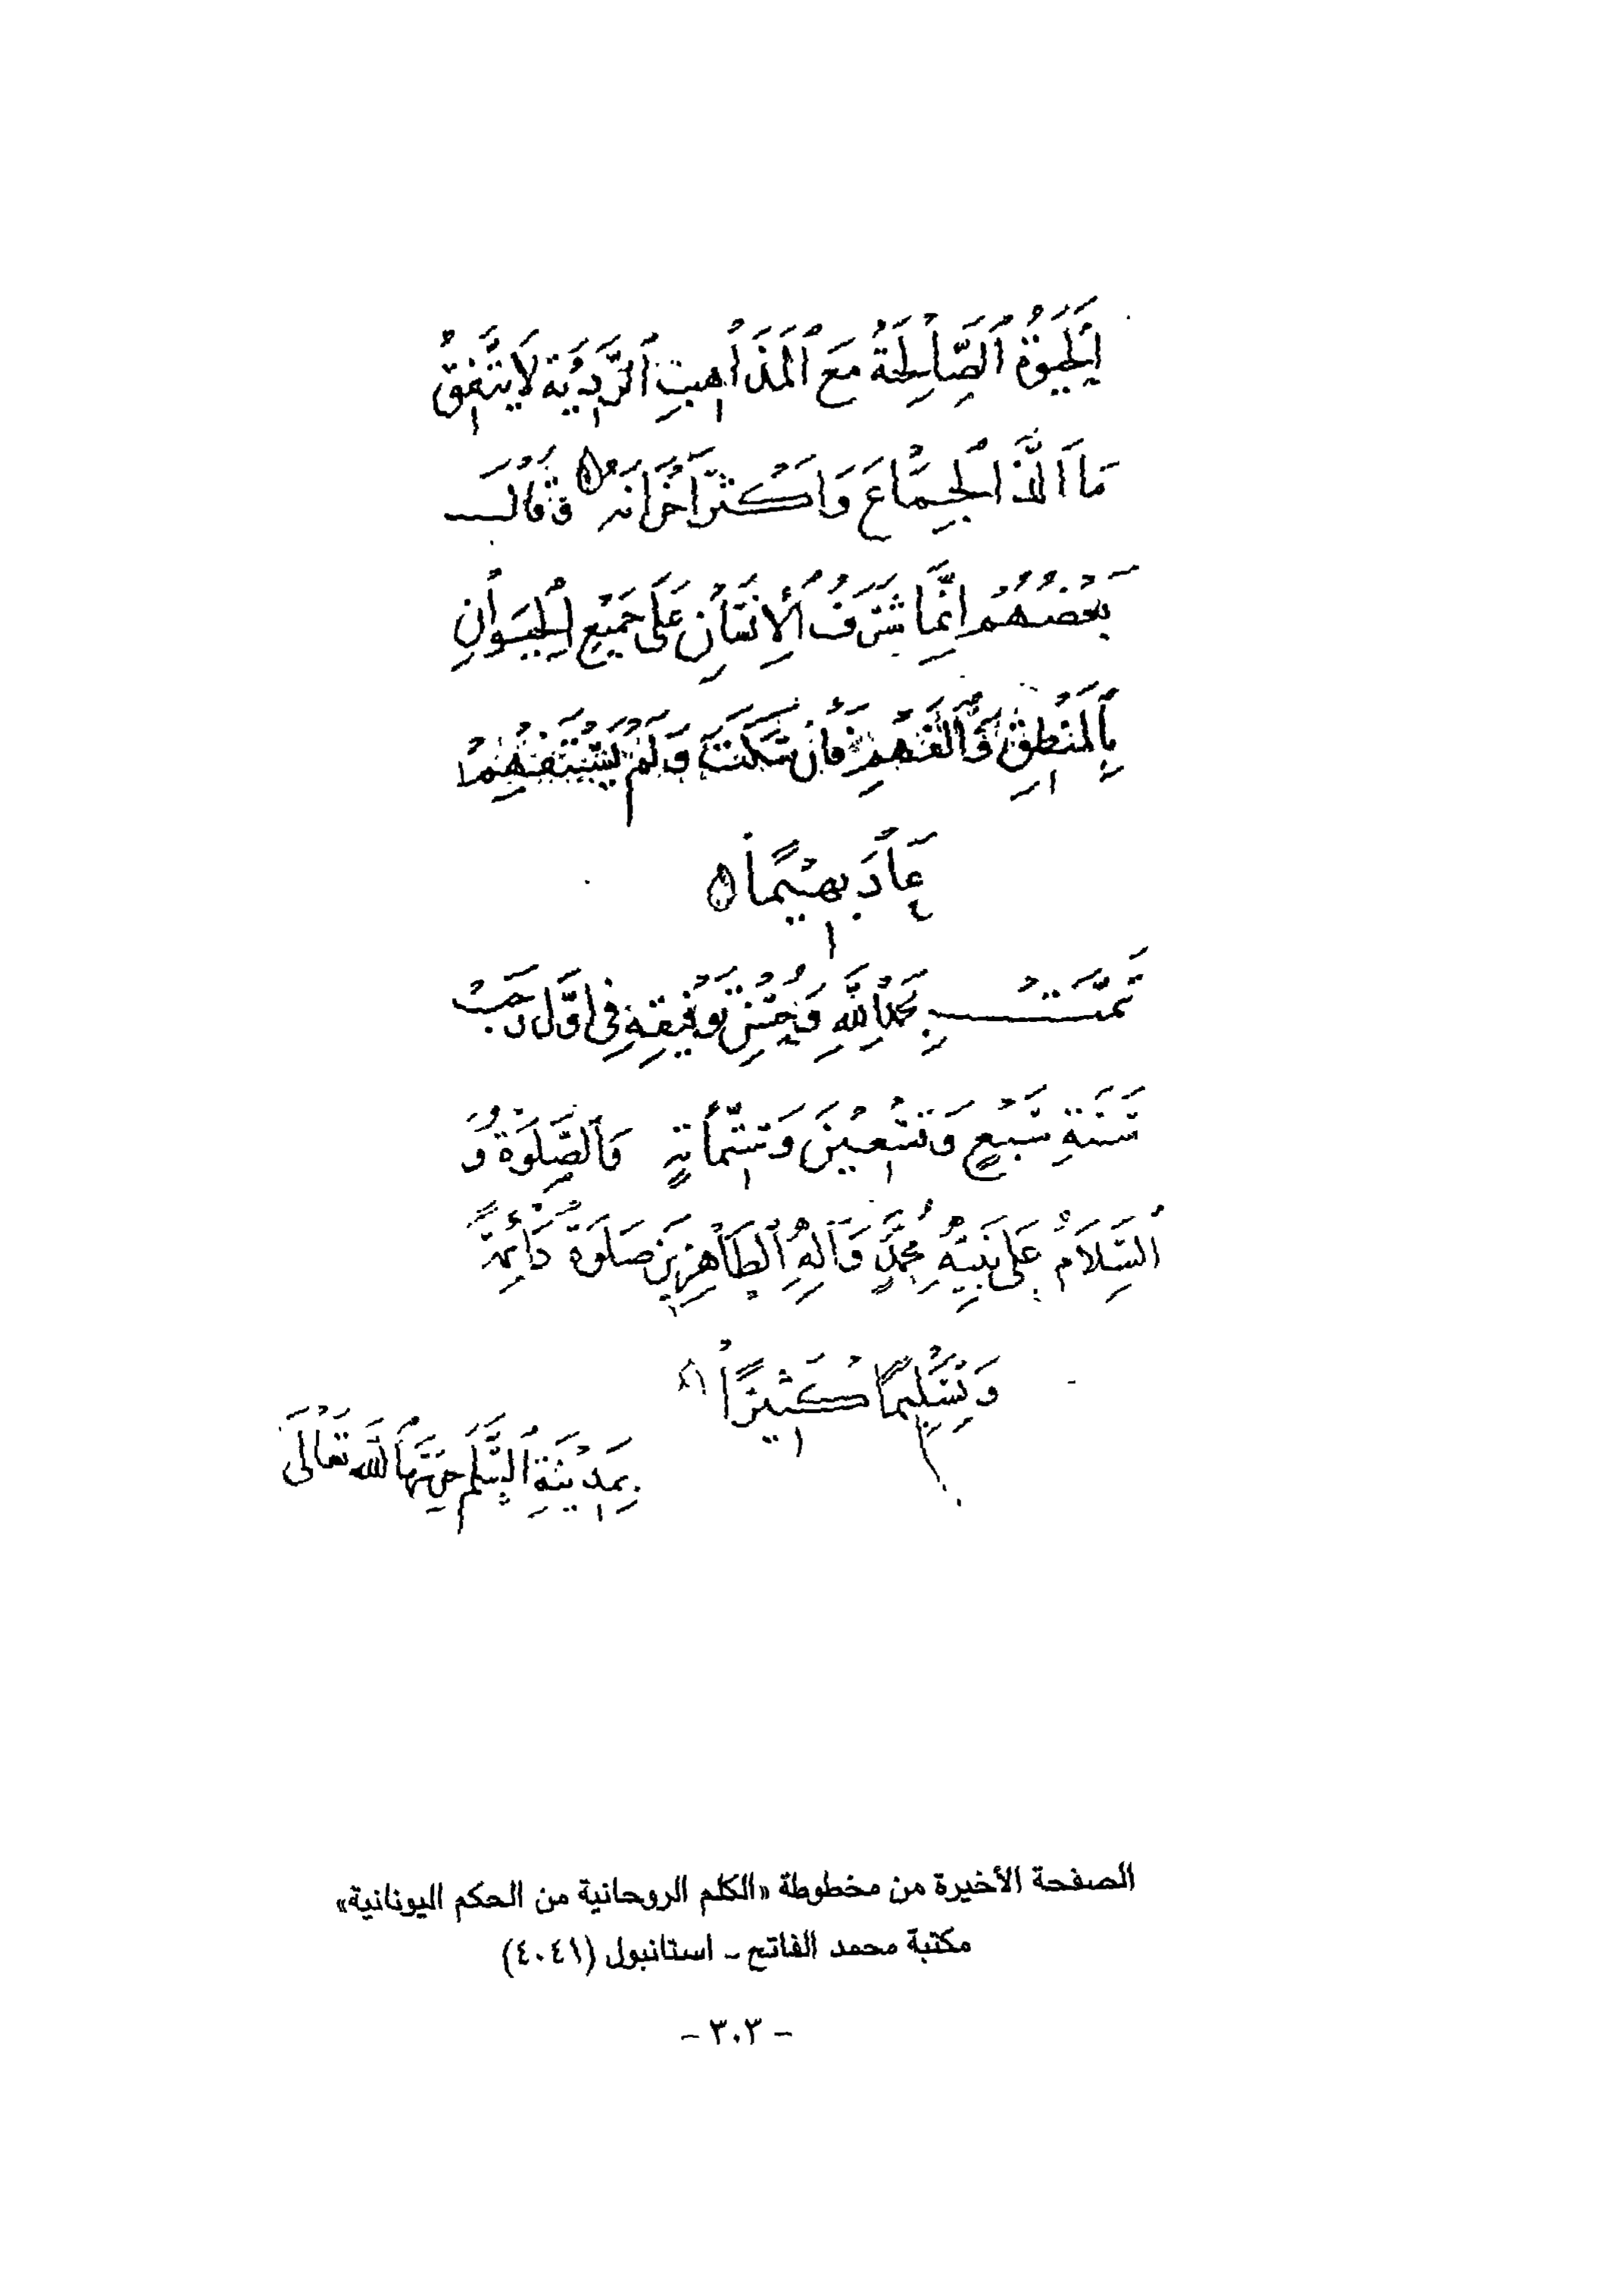 اَلْحَيٰوةُ الصَّالِحَةُ مَعَ الْمَذَاهِبِ الرَّدِيَّةِ لَا يَتَّفِقُ
مَا اَلَذَّ الْجِمَاعَ وَاَكْثَرَ اَحْزَانَهُ ۵ وَقَالَ
بَعْضُهُمْ اِنَّمَا شَرَفُ الْاِنْسَانِ عَلَى جَمِيْعِ الْحَيَوَانِ
بِالْمَنْطِقِ وَالْفَهْمِ فَاِنْ سَكَتَ وَلَمْ يَسْتَفْهِمْ
عَادَ بَهِيْمًا ۵
تَمَّتْ بِحَمْدِ اللّٰهِ وَحُسْنِ تَوْفِيْقِهِ فِي اَوَّلِ رَجَبْ
سَنَةِ سَبْعٍ وَتِسْعِيْنَ وَسِتِّمِائَةٍ وَالصَّلٰوةُ وَ
السَّلَامُ عَلٰى نَبِيِّهِ مُحَمَّدٍ وَآلِهِ الطَّاهِرِيْنَ صَلٰوةً دَائِمَةً
وَتَسْلِيْمًا كَثِيْرًا
بِمَدِيْنَةِ السَّلَمِ حَرَسَهَا اللّٰه تَعَالَى
الصفحة الأخيرة من مخطوطة «الكلم الروحانية من الحكم اليونانية»
مكتبة محمد الفاتح - استانبول (٤٠٤١)
- ٣٠٣ -